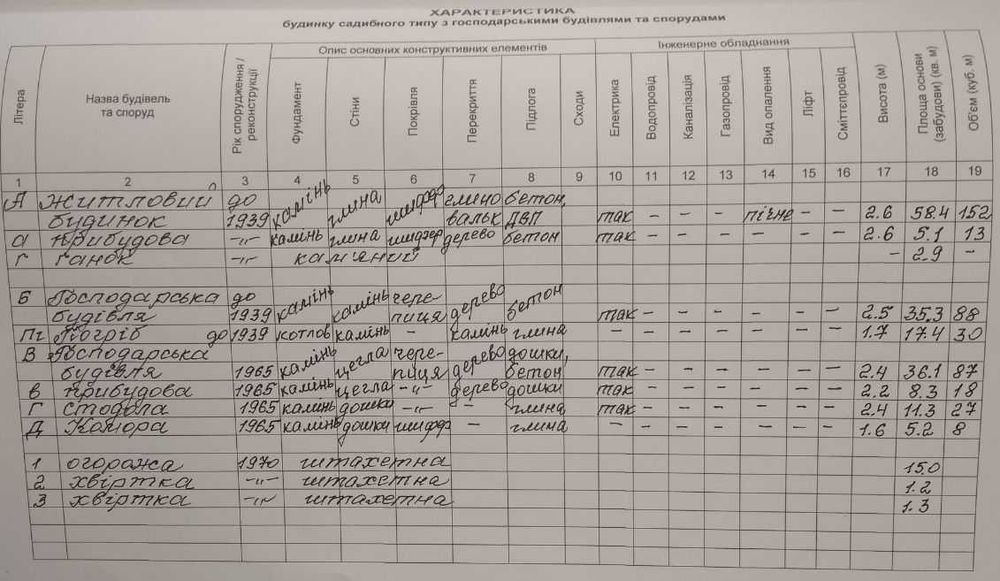 ХАРАКТЕРИСТИКА
будинку садибного типу з господарськими будівлями та спорудами
Літера Назва будівель та споруд Рік спорудження / реконструкції Опис основних конструктивних елементів Інженерне обладнання Висота (м) Площа основи (забудови) (кв. м) Об'єм (куб. м)
Фундамент Стіни Покрівля Перекриття Підлога Сходи Електрика Водопровід Каналізація Газопровід Вид опалення Ліфт Сміттєпровід
1 2 3 4 5 6 7 8 9 10 11 12 13 14 15 16 17 18 19
А Житловий до камінь глина шифер глино бетон,
будинок 1939 вальк ДВП так – – – пічне – – 2.6 58.4 152
а прибудова –"– камінь глина шифер дерево бетон так – – – – – – 2.6 5.1 13
г ганок –"– кам'яний – 2.9 –
Б Господарська до камінь камінь чере- дерево бетон
будівля 1939 пиця так – – – – – – 2.5 35.3 88
Пг Погріб до 1939 котлов камінь – камінь глина – – – – – – – 1.7 17.4 30
В Господарська камінь цегла чере- дерево дошки,
будівля 1965 пиця бетон так – – – – – – 2.4 36.1 87
в прибудова 1965 камінь цегла –"– дерево дошки так – – – – – – 2.2 8.3 18
Г Стодола 1965 камінь дошки –"– – глина так – – – – – – 2.4 11.3 27
Д Комора 1965 камінь дошки шифер – глина – – – – – – – 1.6 5.2 8
1 огорожа 1970 штахетна 15.0
2 хвіртка –"– штахетна 1.2
3 хвіртка –"– штахетна 1.3